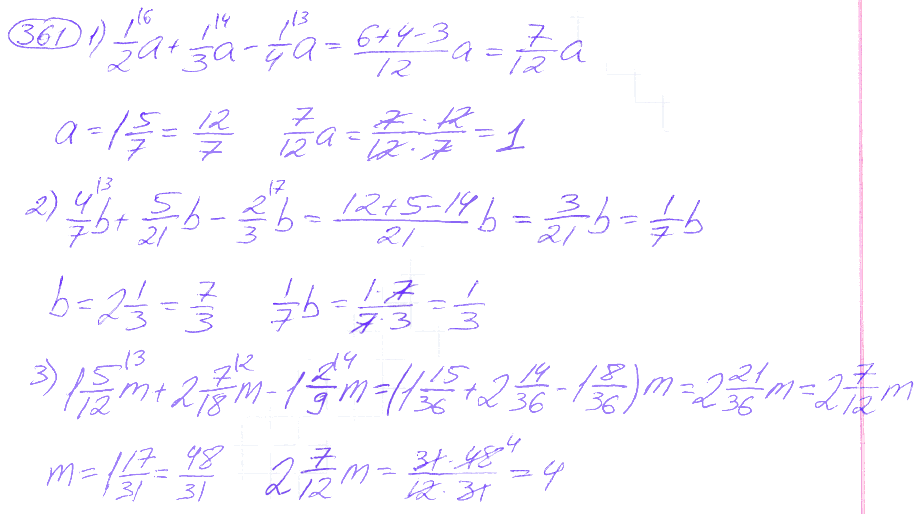 361 1) 1/2^{\6}a + 1/3^{\4}a - 1/4^{\3}a = (6+4-3)/12 a = 7/12 a
a = 1 5/7 = 12/7   7/12 a = (7 · 12)/(12 · 7) = 1
2) 4/7^{\3}b + 5/21 b - 2/3^{\7}b = (12+5-14)/21 b = 3/21 b = 1/7 b
b = 2 1/3 = 7/3   1/7 b = (1 · 7)/(7 · 3) = 1/3
3) 1 5/12^{\3}m + 2 7/18^{\2}m - 1 2/9^{\4}m = (1 15/36 + 2 14/36 - 1 8/36)m = 2 21/36 m = 2 7/12 m
m = 1 17/31 = 48/31   2 7/12 m = (31 · 48^4)/(12 · 31) = 4